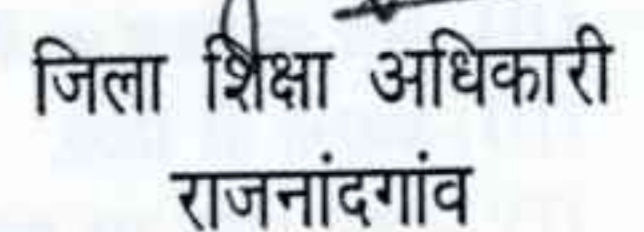 जिला शिक्षा अधिकारी
राजनांदगांव